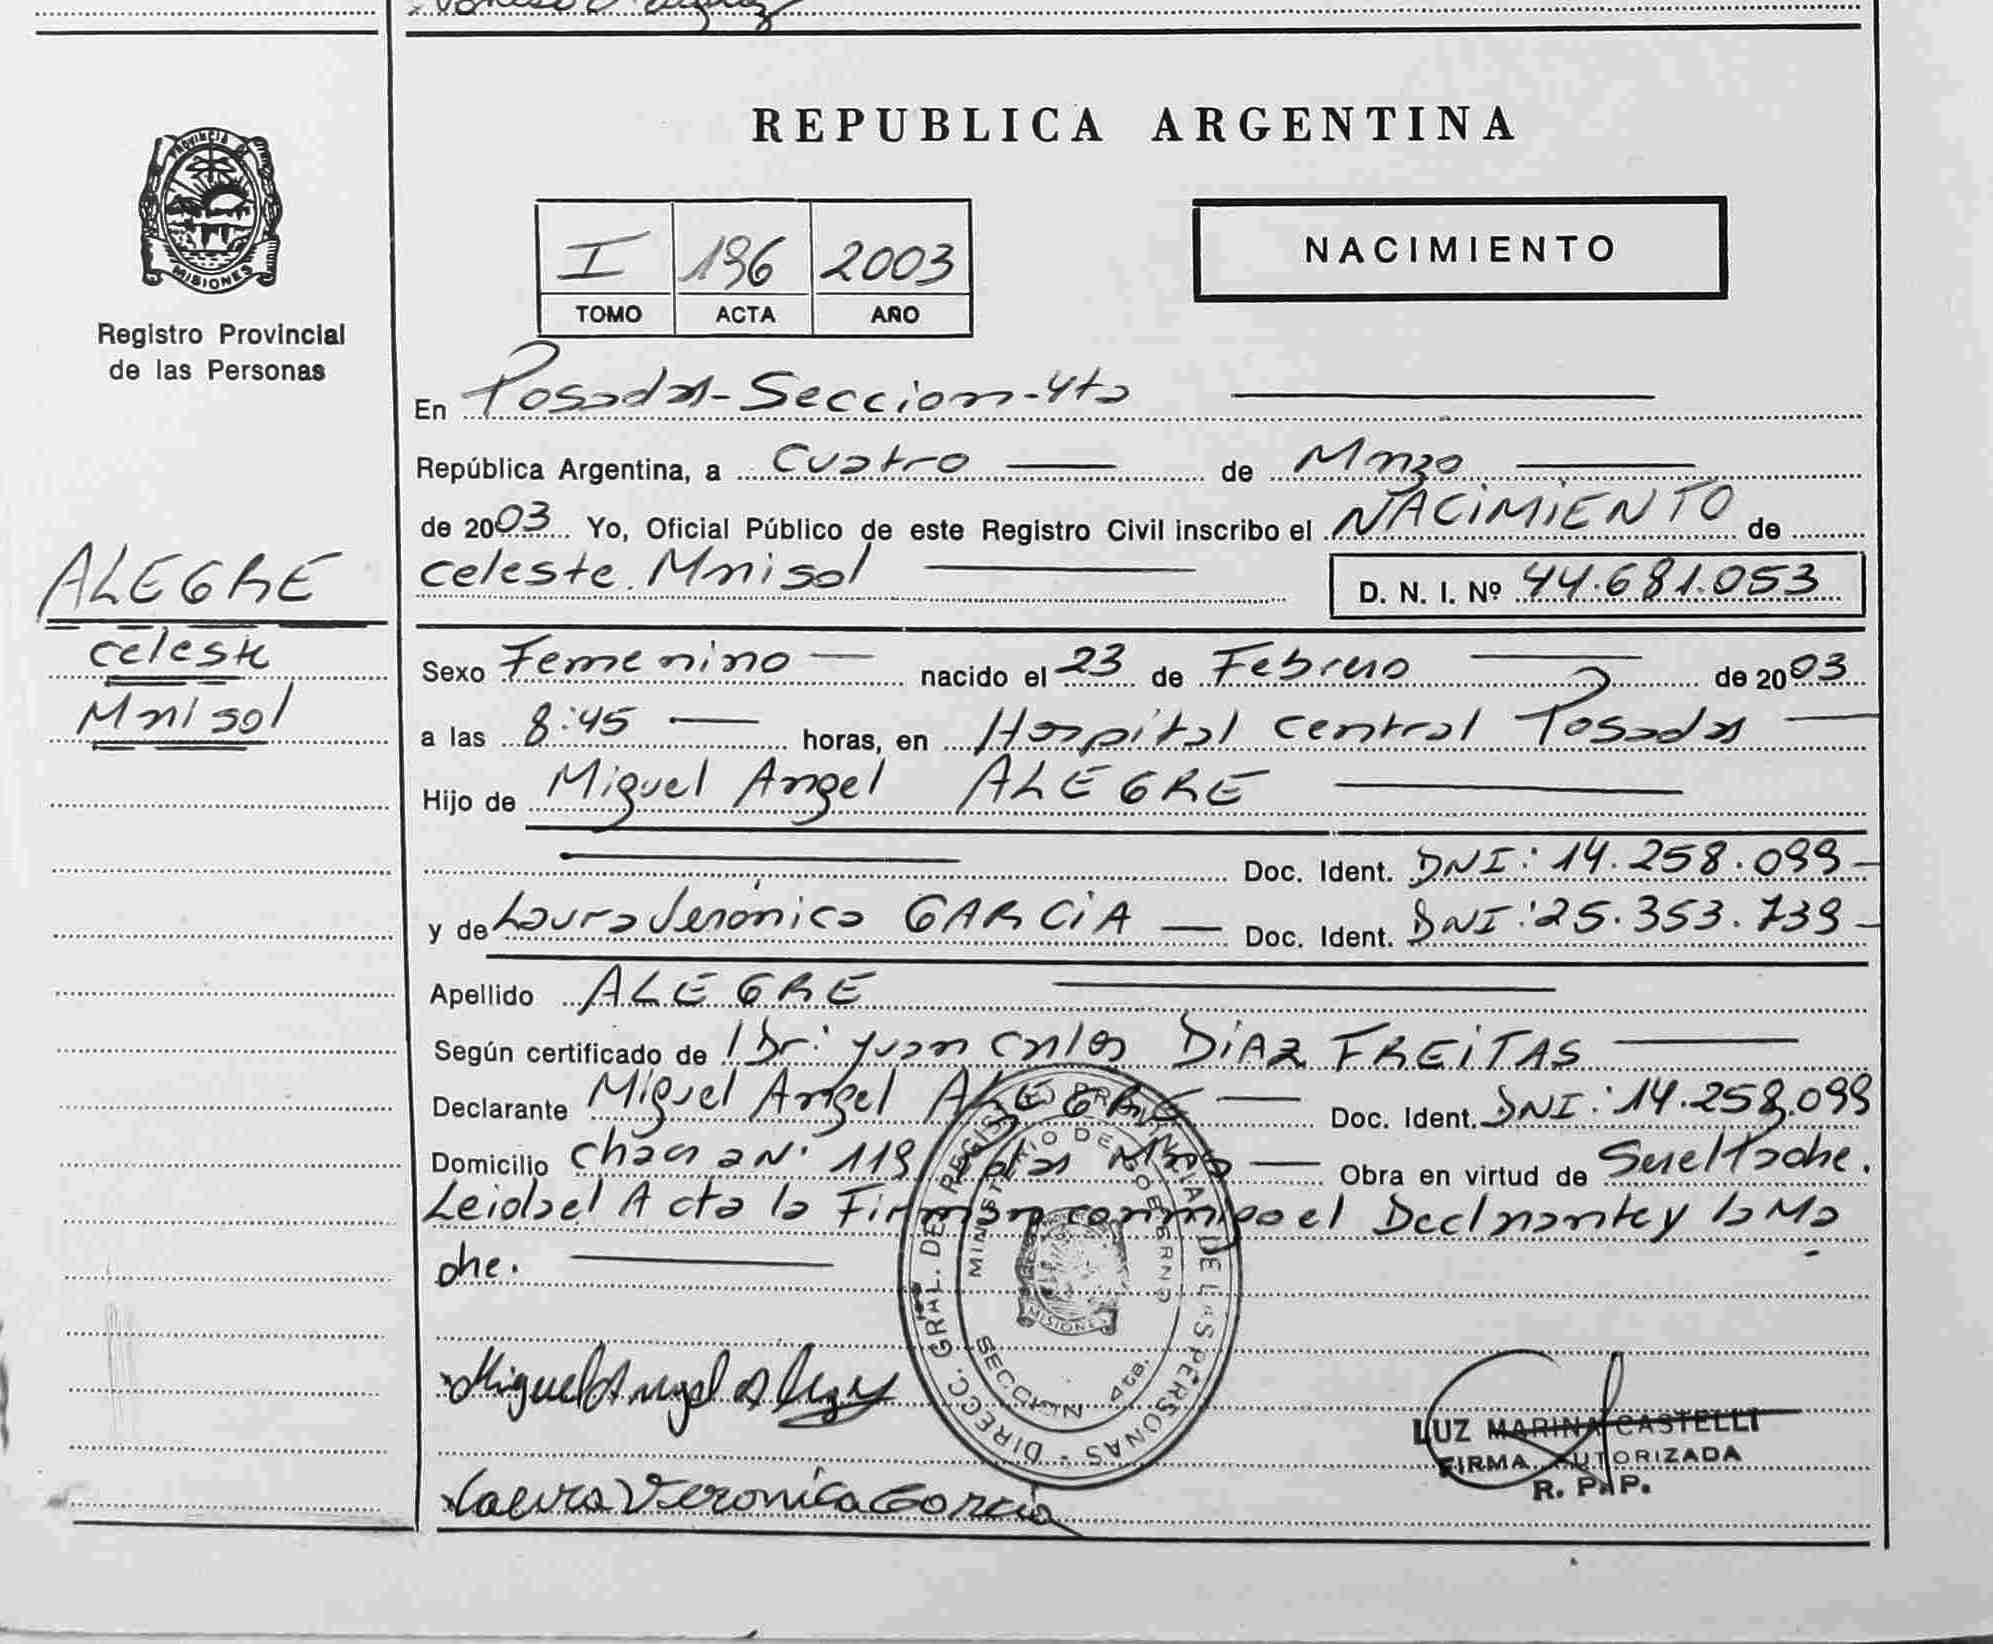 REPUBLICA ARGENTINA
PROVINCIA DE
MISIONES
Registro Provincial
de las Personas
I 196 2003
TOMO ACTA AÑO
NACIMIENTO
En Posadas-Seccion-4ta
República Argentina, a Cuatro de Marzo
de 2003 Yo, Oficial Público de este Registro Civil inscribo el NACIMIENTO de
celeste Marisol D. N. I. Nº 44.681.053
ALEGRE
celeste
Marisol
Sexo Femenino nacido el 23 de Febrero de 2003
a las 8:45 horas, en Hospital central Posadas
Hijo de Miguel Angel ALEGRE
Doc. Ident. DNI: 14.258.099
y de Laura Verónica GARCIA Doc. Ident. DNI: 25.353.739
Apellido ALEGRE
Según certificado de Dr: Juan Carlos DIAZ FREITAS
Declarante Miguel Angel ALEGRE Doc. Ident. DNI: 14.258.099
Domicilio chacra Nº 119 Obra en virtud de Ser el Padre.
Leida el Acta la Firman conmigo el Declarante y la Ma
dre.
DIRECC. GRAL. DEL REGISTRO PROVINCIAL DE LAS PERSONAS -
MINISTERIO DE GOBIERNO
MISIONES
SECCION 4ta.
Miguel Angel Alegre
Laura Veronica Garcia
LUZ MARINA CASTELLI
FIRMA AUTORIZADA
R. P. P.